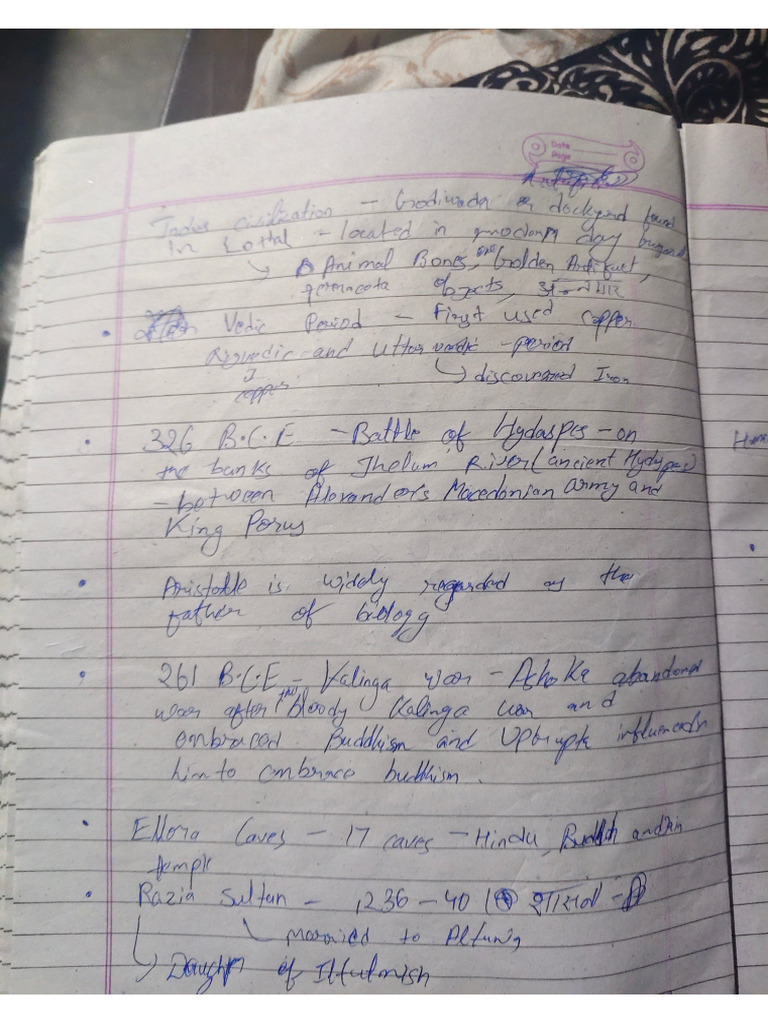 Date
Page
Indus civilization - Godiwada or dockyard found
in Lothal - located in modern day Gujarat
↳ Animal Bones, Golden Artifact,
objects,
• Vedic Period - First used copper
Rigvedic and Uttar vedic - period
copper
↳ discovered Iron
• 326 B.C.E - Battle of Hydaspes - on
the banks of Jhelum River (ancient
- between Alexander's Macedonian army and
King Porus
• Aristotle is widely regarded as the
father of biology
• 261 B.C.E - Kalinga war - Ashoka abandoned
war after bloody Kalinga war and
embraced Buddhism and
him to embrace buddhism.
• Ellora Caves - 17 caves - Hindu,
temple
• Razia Sultan - 1236 - 40 शासन
married to Altunia
↳ of Iltutmish